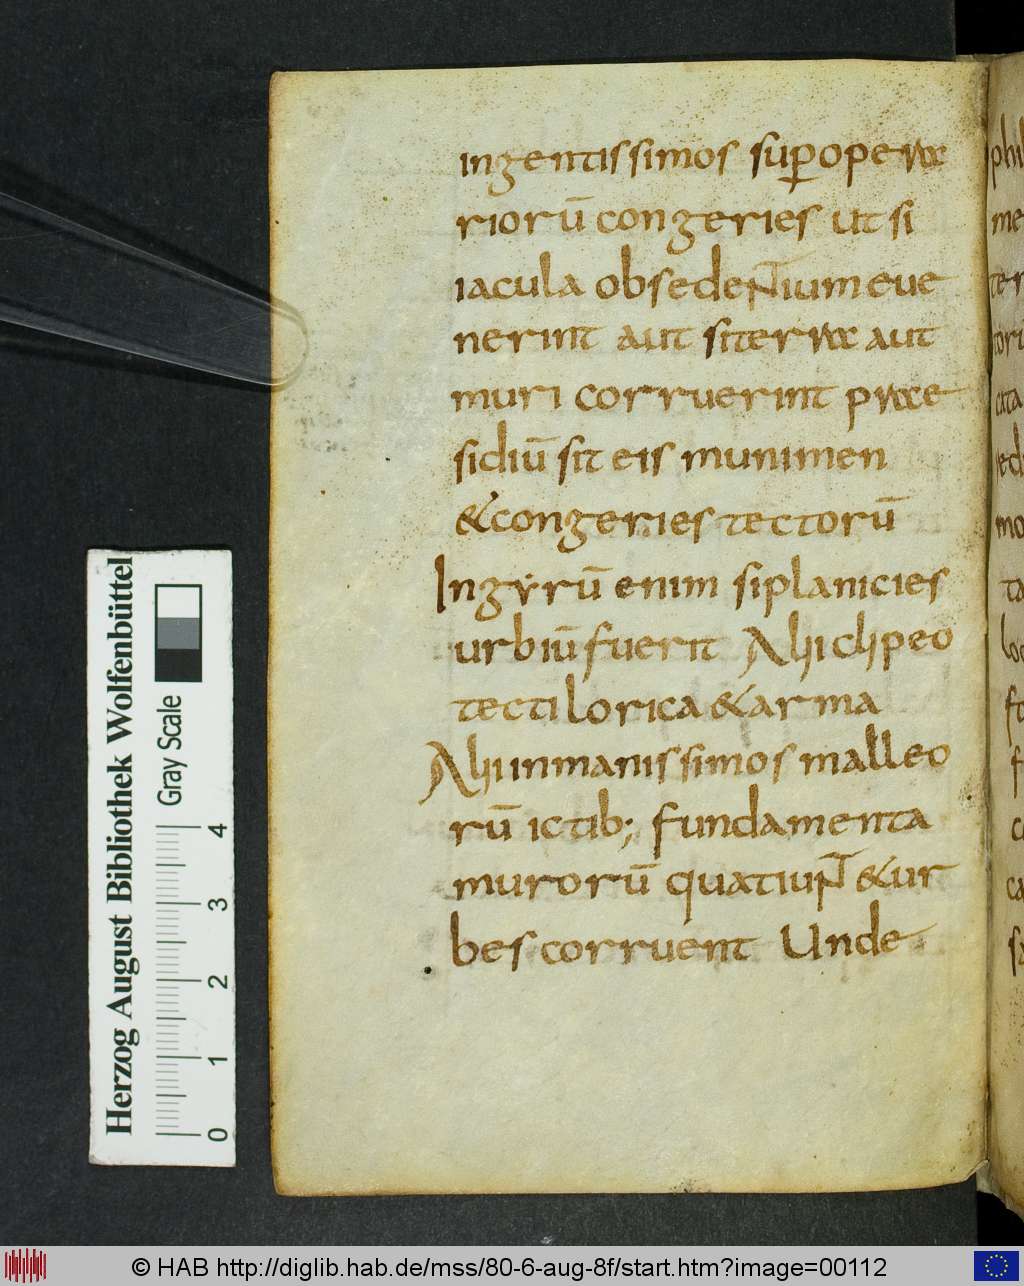 ingentissimos sup̄opera
riorū congeries ut si
iacula obsedentium eue
nerint aut si terra aut
muri corruerint prae
sidiū sit eis munimen
&congeries tectorū
Ingyrū enim si planicies
urbiū fuerit Alii clipeo
tecti lorica & arma
Alii inmanissimos malleo
rū ictib; fundamenta
murorū quatiunt & ur
bes corruent Unde
phil
me
ter
tori
cita
mo
ta
Herzog August Bibliothek Wolfenbüttel
Gray Scale
0 1 2 3 4
© HAB http://diglib.hab.de/mss/80-6-aug-8f/start.htm?image=00112